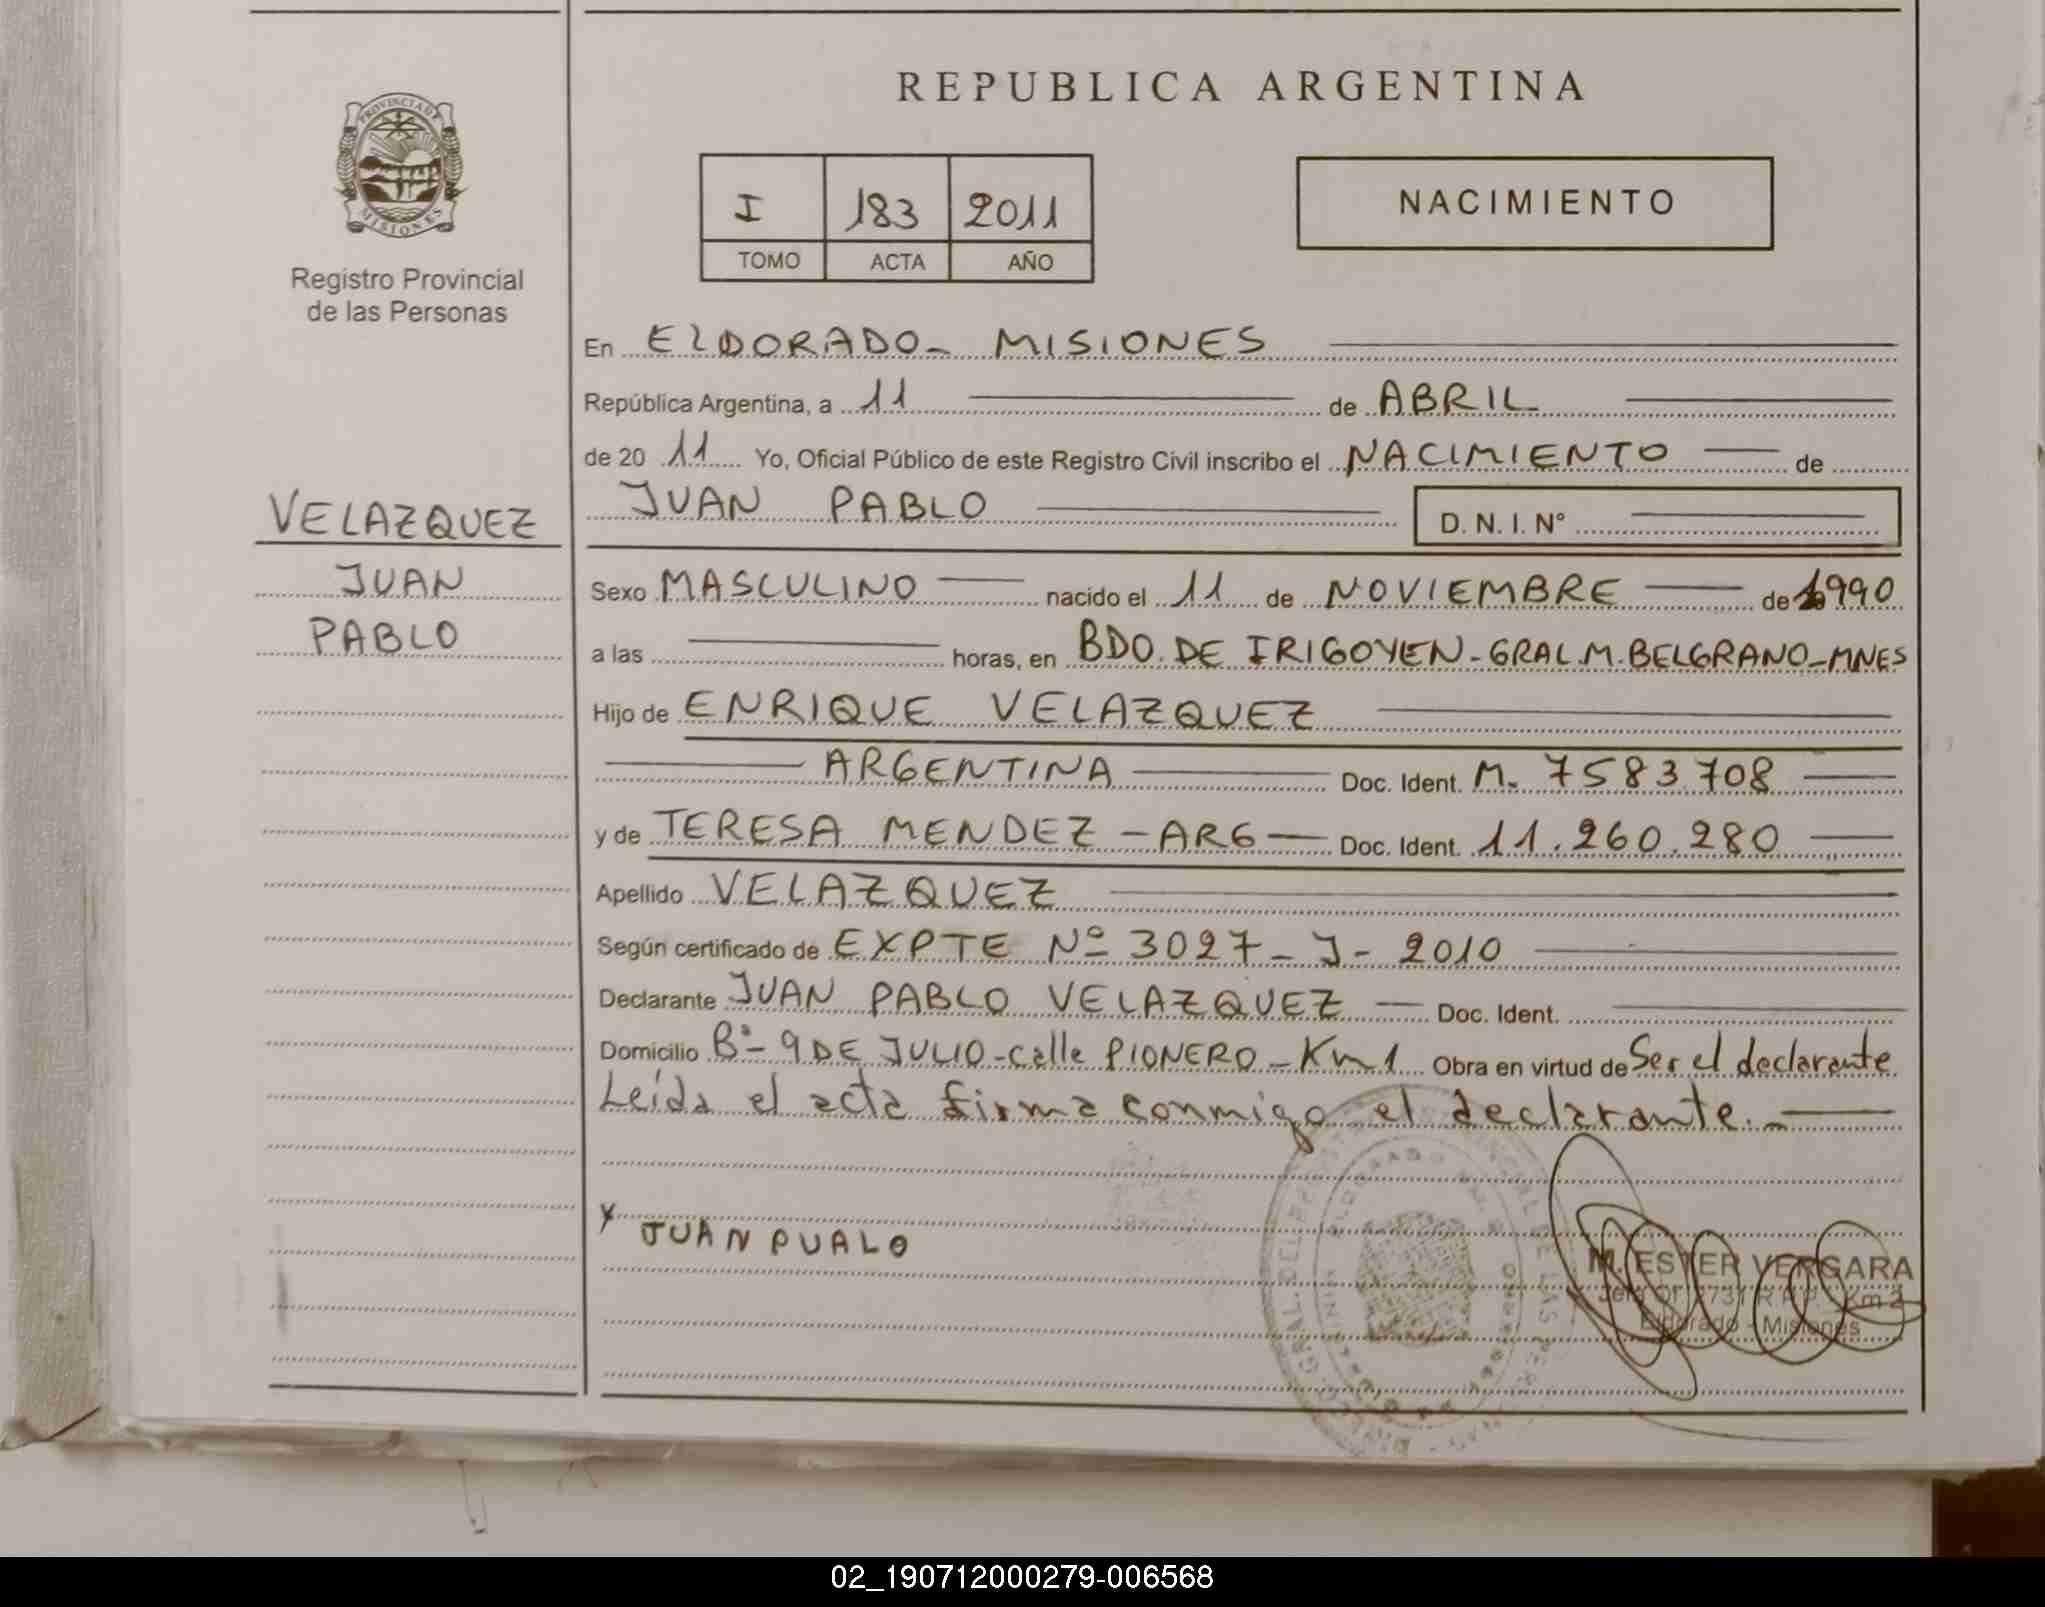 REPUBLICA ARGENTINA
PROVINCIA DE
MISIONES
Registro Provincial
de las Personas
I 183 2011
TOMO ACTA AÑO
NACIMIENTO
En ELDORADO - MISIONES
República Argentina, a 11 de ABRIL
de 20 11 Yo, Oficial Público de este Registro Civil inscribo el NACIMIENTO de
JUAN PABLO D. N. I. N°
VELAZQUEZ
JUAN
PABLO
Sexo MASCULINO nacido el 11 de NOVIEMBRE de 1990
a las horas, en BDO. DE IRIGOYEN - GRAL.M. BELGRANO - MNES
Hijo de ENRIQUE VELAZQUEZ
ARGENTINA Doc. Ident. M. 7583.708
y de TERESA MENDEZ - ARG Doc. Ident. 11.260.280
Apellido VELAZQUEZ
Según certificado de EXPTE Nº 3027 - J - 2010
Declarante JUAN PABLO VELAZQUEZ Doc. Ident.
Domicilio Bº - 9 DE JULIO - calle PIONERO - Km 1 Obra en virtud de Ser el declarante
Leída el acta firma conmigo el declarante. -
X JUAN PUALO
M. ESTER VERGARA
Eldorado - Misiones
02_190712000279-006568